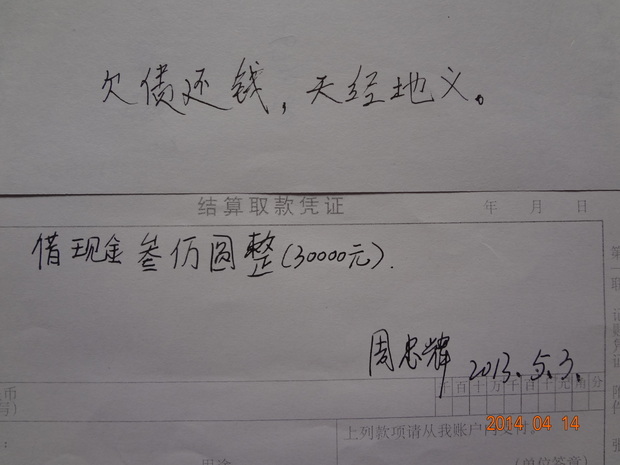 欠债还钱，天经地义。
结算取款凭证 年 月 日
借现金叁仟圆整(30000元).
周忠辉 2013.5.3.
千百十万千百十元角分
上列款项请从我账户内支付。
(单位签章)
用途
2014 04 14